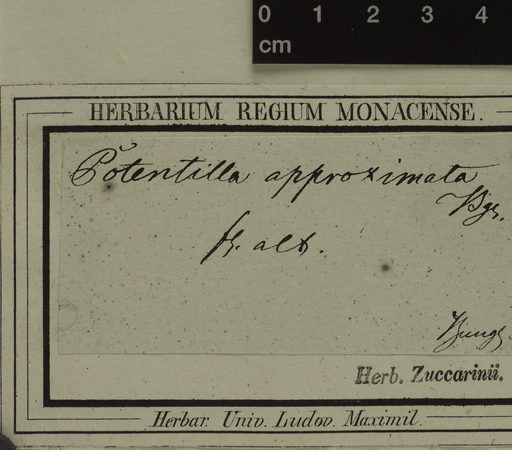 0 1 2 3 4
cm
HERBARIUM REGIUM MONACENSE.
Potentilla approximata
Bge.
fl. alt.
Bunge
Herb. Zuccarinii.
Herbar. Univ. Ludov. Maximil.